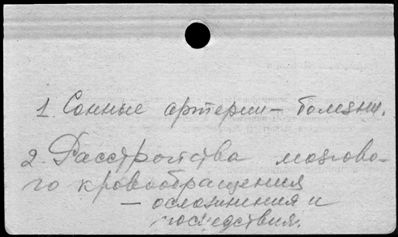 1. Сонные артерии – болезни.
2. Расстройства мозгово-
го кровообращения
– осложнения и
последствия.